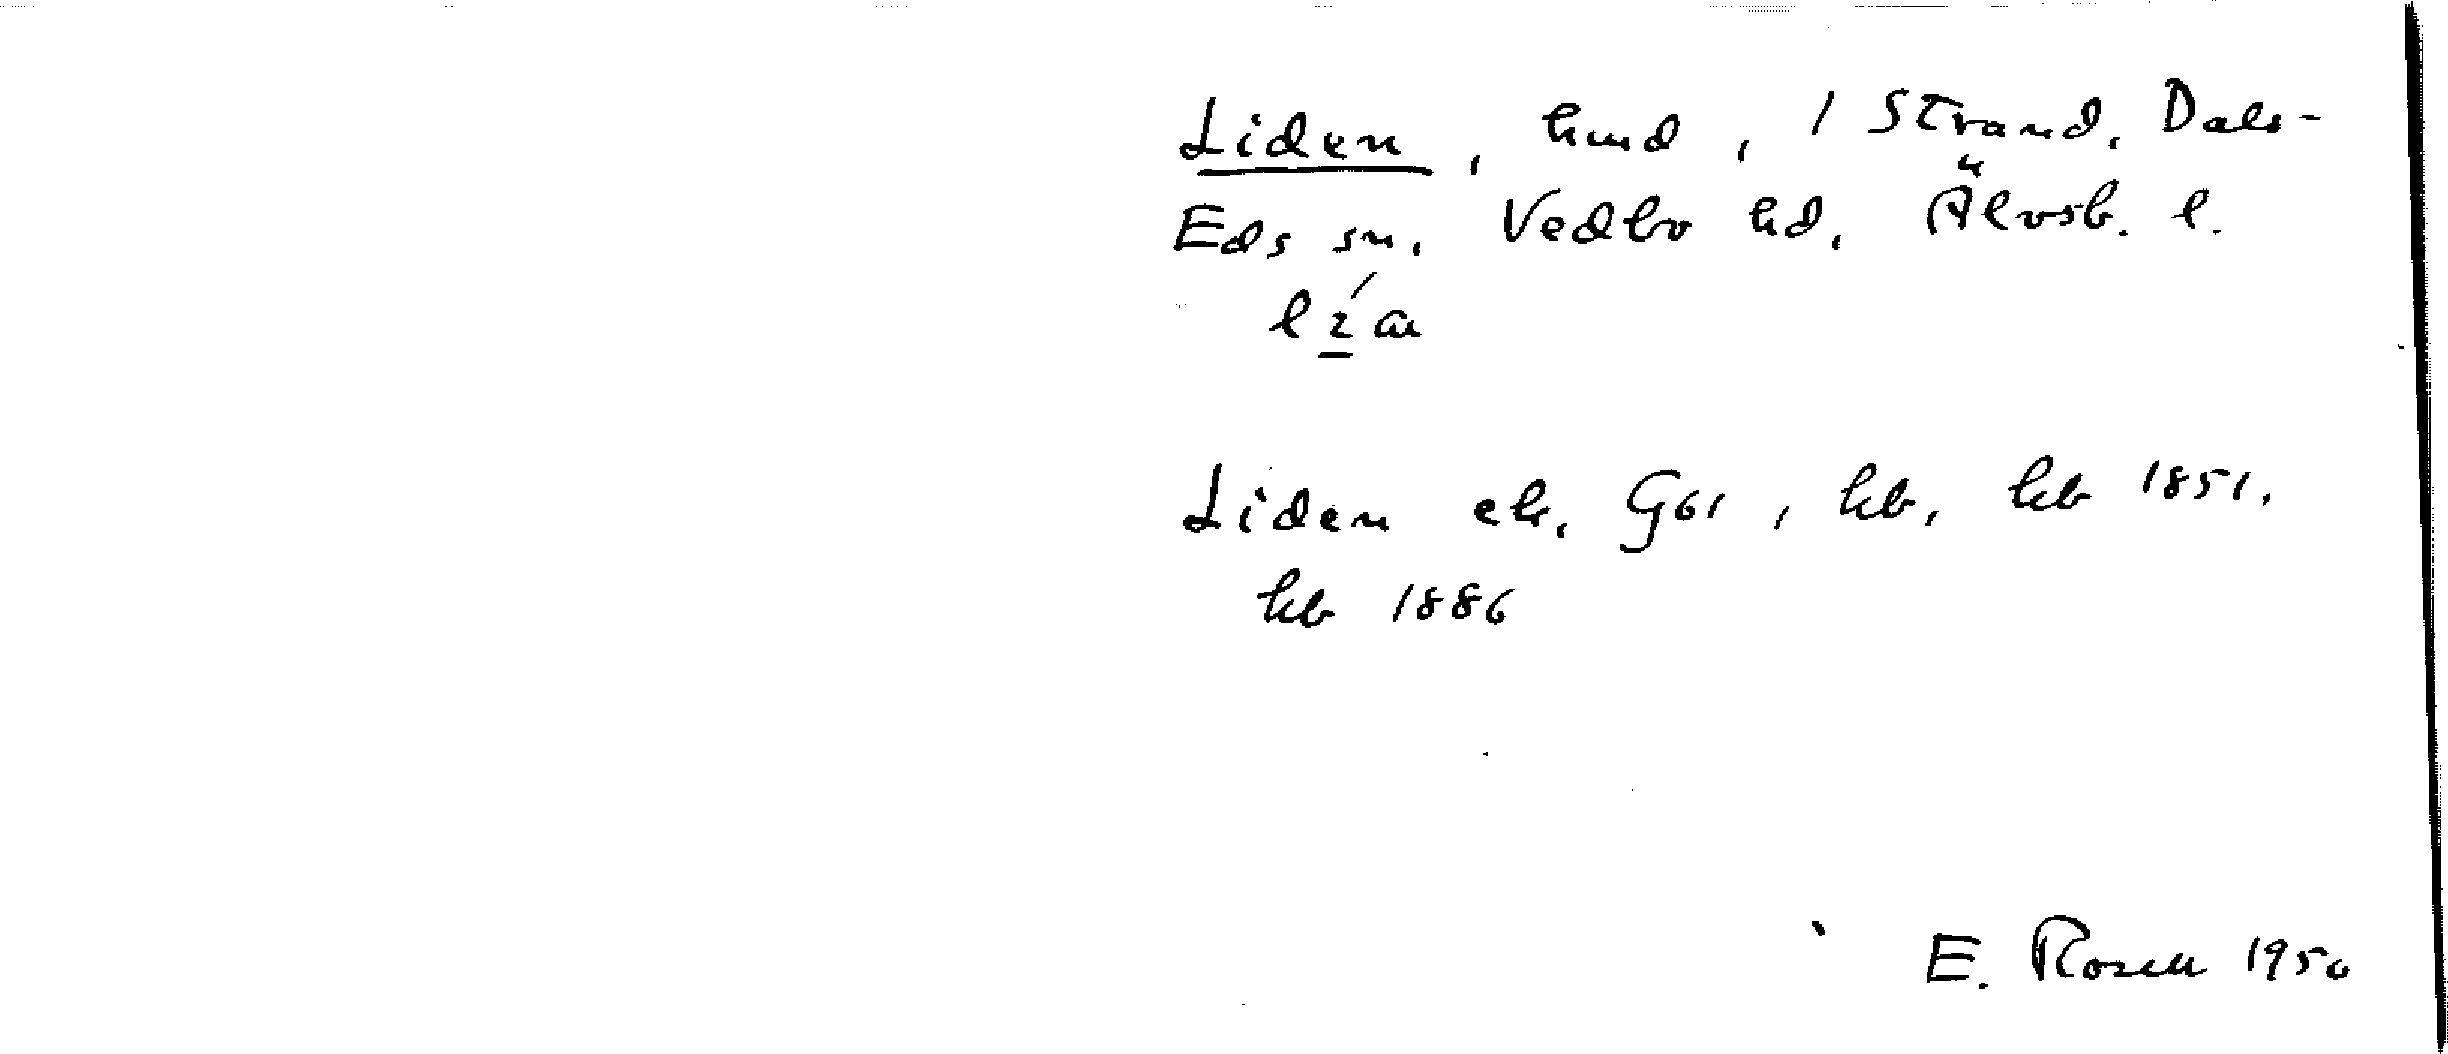 Liden, hmd, 1 Strand, Dals-
Eds sn. Vedbo hd, Älvsb. l.
Liden el. Gbl, hb, hb 1851.
hb 1886
E. Rosell 1950